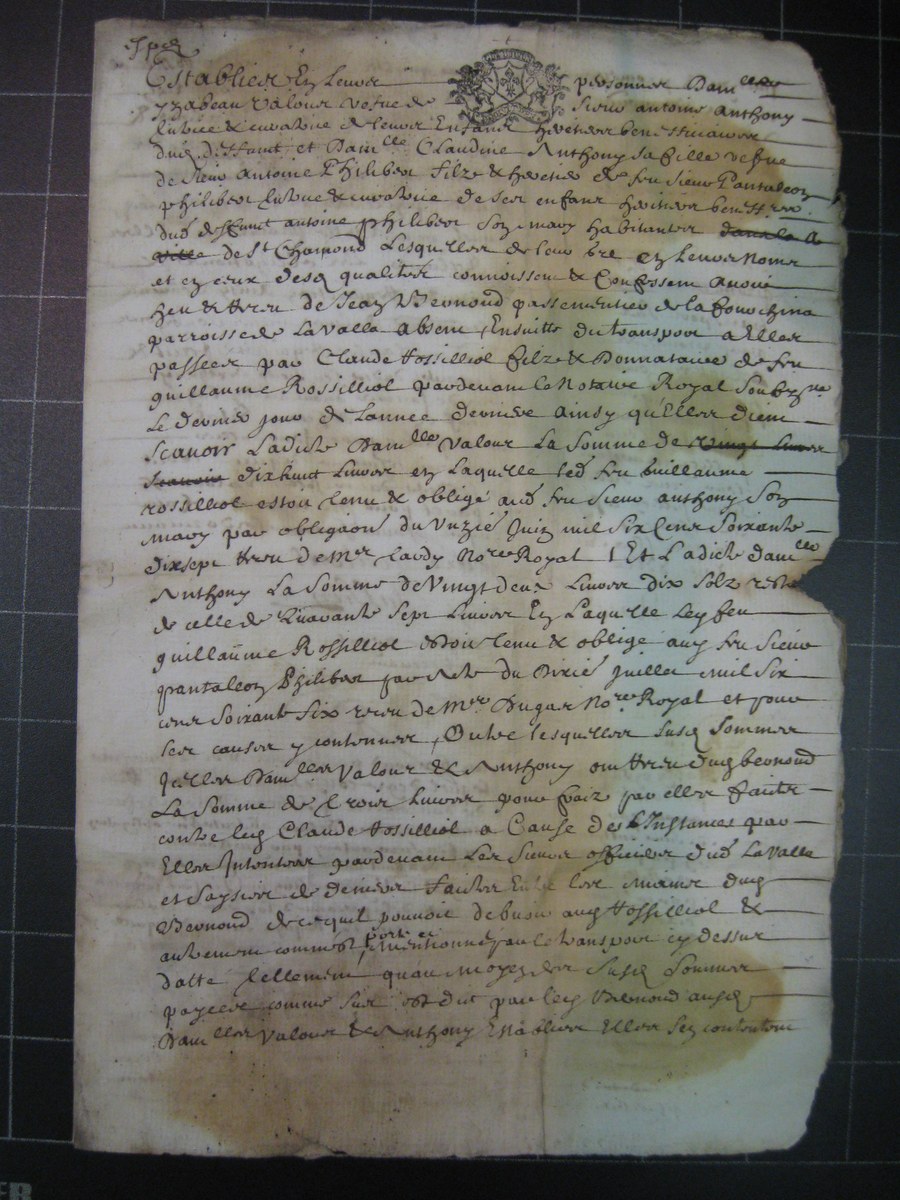 Establies En Leurs personnes Dam.elles
yzabeau Valour vefue de sieur antoine Anthony
tutrice & curatrice de leurs Enfans heretiers beneficiaires
dud. deffunct et Dam.lle Claudine Anthony sa fille vefue
de sieur Antoine Philibert filz & heretier de feu sieur Pantaleon
philibert tutrice & curatrice de ses enfans heretiers
dud deffunct antoine philibert son mary habitantes dans la
ville de St Chamond Lesquelles de leur gre en Leurs Noms
et en ceux desd. qualites connoissent & Confessent Avoir
heu & Receu de Jean Bernond passementier de la fouschina
parroisse de La Valla absent, Ensuitte du transport a Elles
passees par Claude Rossilliol filz & Donnataire de feu
guillaume Rossilliol pardevant le Notaire Royal Soubz.ne
Le dernier jour de Lannee derniere Ainsy qu'Elles dient
Scavoir Ladicte Dam.lle Valour La Somme de vingt Livres
Scavoir dixhuit Livres en Laquelle led. feu Guillaume
rossilliol estoit tenu & obligé aud. feu Sieur anthony Son
mary par obligaon du Unzie Juin mil Six Cens Soixante
dixsept Receu de M.re Lardy No.re Royal, Et Ladicte dam.lle
Anthony La Somme de Vingt deux Livres dix Solz reste
de celle de Quarante Sept Livres En Laquelle Led. feu
guillaume Rossilliol estoit tenu & obligé aud. feu Sieur
pantaleon Philibert par Acte du Dixie Juillet mil Six
cens Soixante Six receu de M.re Dugas No.re Royal et pour
les causes y contenues, Outre lesquelles Susd. Sommes
Icelles Dam.lles Valour & Anthony ont Receu dud. bernond
La Somme de Trois Livres pour fraiz par elles faictes
contre led. Claude Rossilliol a Cause des Instances par
Elles Intentees pardevant Les Sieurs officiers dud. La Valla
et Saysies de deniers faictes Entre les mains dud.
Bernond de ce quil pouvoit debvoir aud. Rossilliol &
autrement comme est porté et mentionné par le transport cy dessus
datté tellement quau moyen des Susd. Sommes
payees comme Sus est dit par led. Bernond ausd.
Dam.lles Valour & Anthony Establies Elles Sen contentent